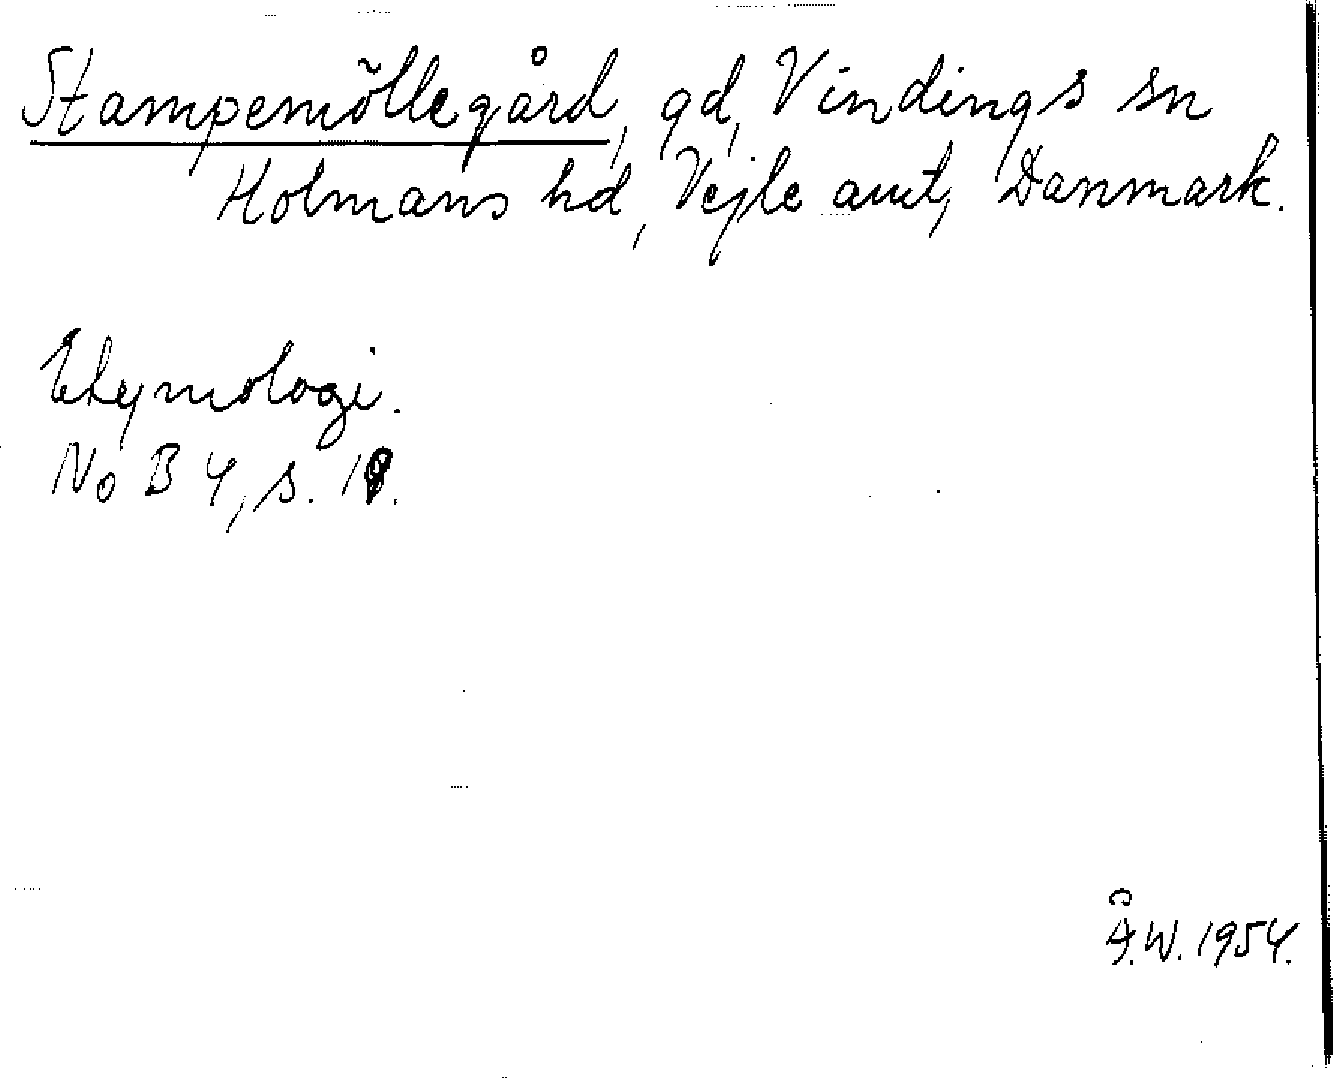 Stampemöllegård, gd, Vindings sn
Holmans hd, Vejle amt, Danmark.
Etymologi.
No B 4, s.
Å.W. 1954.